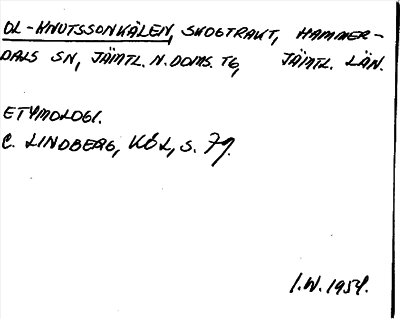 OL-KNUTSSONKÄLEN, SKOGTRAKT, HAMMER-
DALS SN, JÄMTL. N. DOMS. TG, JÄMTL. LÄN.
ETYMOLOGI.
C. LINDBERG, KÖL, S. 79.
I.W. 1954.